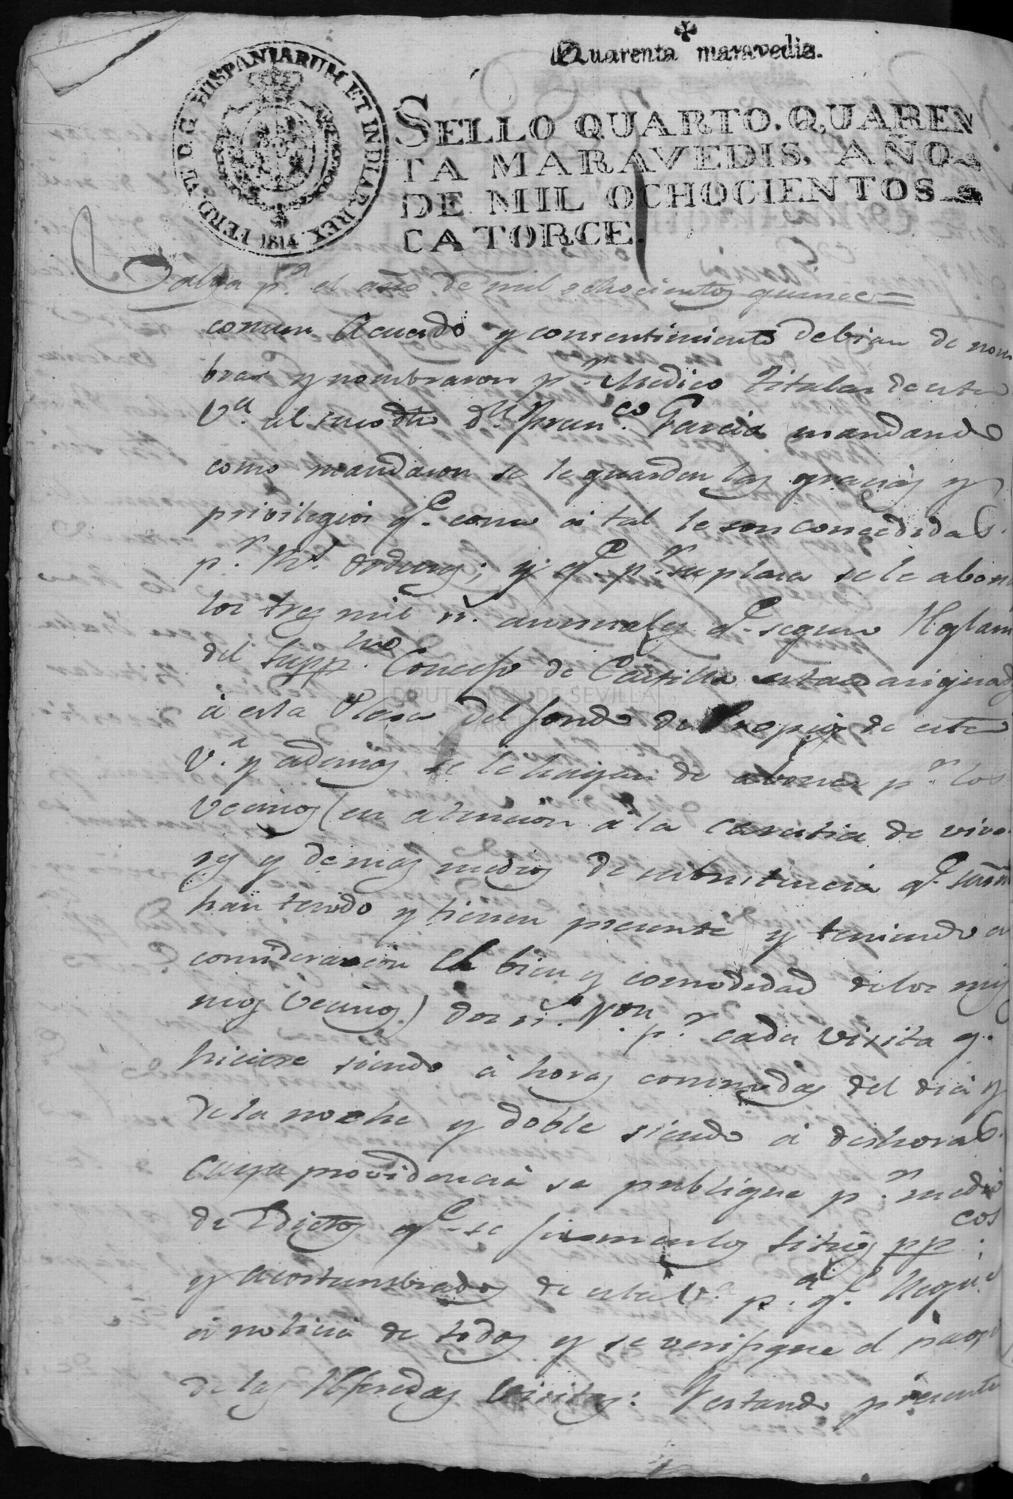 Quarenta maravedis.
FERD. VII. D. G. HISPANIARUM ET INDIAR. REX. 1814
SELLO QUARTO. QUAREN
TA MARAVEDIS. AÑO
DE MIL OCHOCIENTOS
CATORCE.
Valga p.ª el año de mil ochocientos quince =
comun Acuerdo y consentimiento debian de nom
brar y nombraron p.r Medico Titular de esta
V.ª al suso dho d.n Fran.co Garcia mandando
como mandaron se le guarden las gracias y
privilegios q.e como á tal le son concedidas
p.r R.s ordenes; y q.e p.r su plaza se le abon
los tres mil r.s anuales q.e segun Reglam
del Supp.mo Consejo de Castilla estan asignad
á esta Plaza del fondo de Propios de esta
V.ª y ademas se le haigan de abonar p.r los
Vecinos (en atencion a la carestia de vive
res y demas medios de subsistencia q.e
han tenido y tienen presente y teniendo en
consideracion el bien y comodidad de los mis
mos Vecinos) dos r.s von p.r cada visita q.e
hiciere siendo á horas comodas del dia y
de la noche y doble siendo á deshoras.
Cuya providencia se publique p.r medio
de Edictos q.e se fixen en los sitios pp.cos
y acostumbrados de esta V.ª p.ª q.e llegue
á noticia de todos y se verifique el pago
de las Referidas visitas: Y estando presente